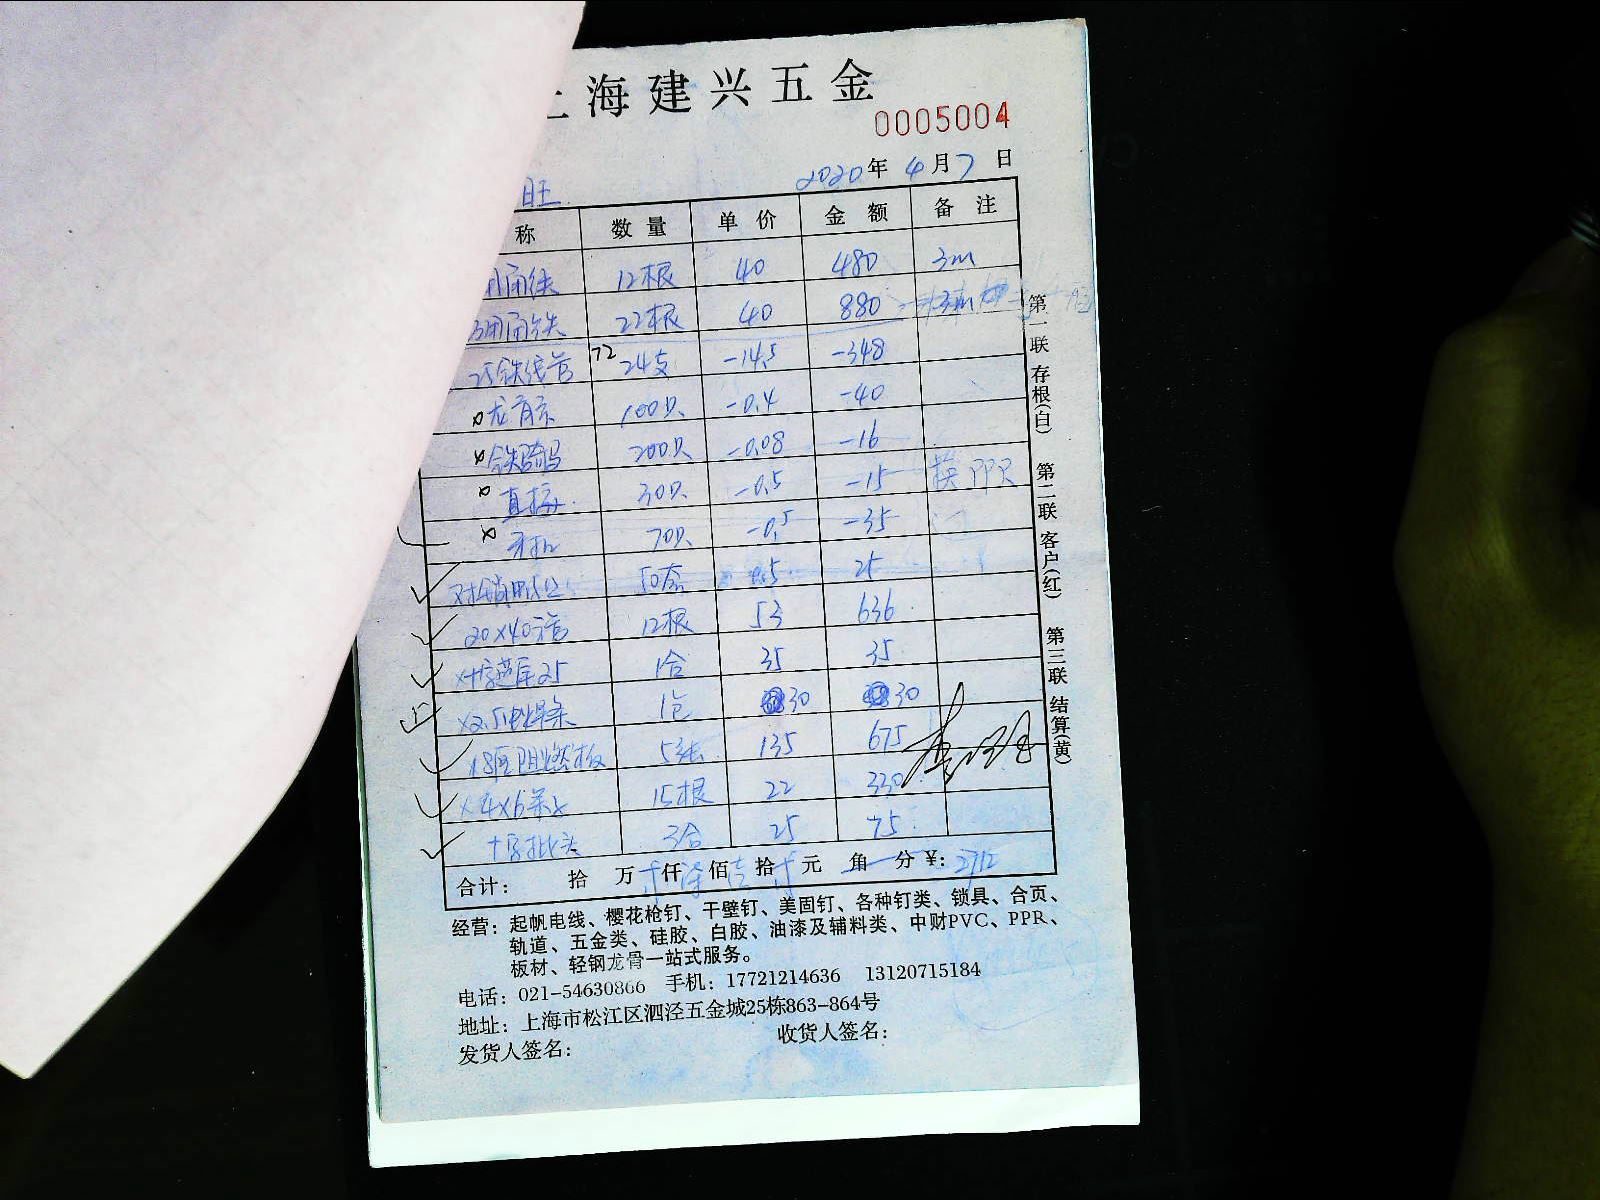 上海建兴五金
0005004
2020年 4月7日
旺
称 数量 单价 金额 备注
12根 40 480 3m
22根 40 880
25铁线管 72 24支 -14.5 -348
龙 100只 -0.4 -40
200只 -0.08 -16
直接 30只 -0.5 -15 换PPR
70只 -0.5 -35
50套 0.5 25
20×40方管 12根 53 636
25 1合 35 35
×2.5电焊条 1包 30 30
18厘阻燃板 5张 135 675
×4×6 15根 22 330
十字批头 3合 25 75
合计: 拾 万 仟 佰 拾 元 角 分 ¥: 2712
第一联 存根(白) 第二联 客户(红) 第三联 结算(黄)
经营: 起帆电线、樱花枪钉、干壁钉、美固钉、各种钉类、锁具、合页、
轨道、五金类、硅胶、白胶、油漆及辅料类、中财PVC、PPR、
板材、轻钢龙骨一站式服务。
电话: 021-54630866 手机: 17721214636 13120715184
地址: 上海市松江区泗泾五金城25栋863-864号
发货人签名: 收货人签名: